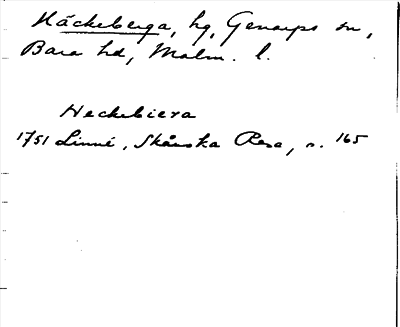 Häckeberga, hg, Genarps sn,
Bara hd, Malm. l.
Heckebierа
1751 Linné, Skånska Resa, s. 165